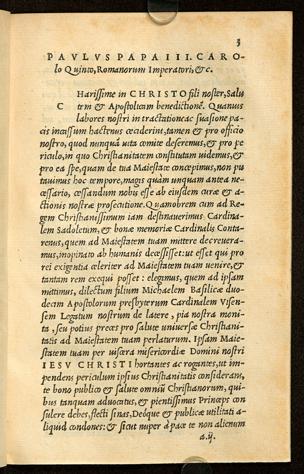 3
PAVLVS PAPA III. CARO-
lo Quinto, Romanorum Imperatori, & c.
Harissime in CHRISTO fili noster, Salu
C tem & Apostolicam benedictionẽ. Quanuis
labores nostri in tractatione ac suasione pa-
cis incassum hactenus ceciderint, tamen & pro officio
nostro, quod nunquã uita comite deseremus, & pro pe
riculo, in quo Christianitatem constitutam uidemus, &
pro ea spe, quam de tua Maiestate concepimus, non pu
tauimus hoc tempore, magis quàm unquam antea ne-
cessario, cessandum nobis esse ab eiusdem curæ & a-
ctionis nostræ prosecutione. Quamobrem cum ad Re-
gem Christianissimum iam destinauerimus Cardina-
lem Sadoletum, & bonæ memoriæ Cardinalis Conta-
renus, quem ad Maiestatem tuam mittere decreuera-
mus, inopinatò ab humanis decesisset: ut esset qui pro
rei exigentia celeriter ad Maiestatem tuam uenire, &
tantam rem exequi posset: elegimus, quem ad ipsam
mittimus, dilectum filium Michaelem Basilicæ duo-
decim Apostolorum presbyterum Cardinalem Visen-
sem Legatum nostrum de latere, pia nostra monita
, seu potius preces pro salute uniuersæ Christiani-
tatis ad Maiestatem tuam perlaturum. Ipsam Maie-
statem tuam per uiscera misericordiæ Domini nostri
IESV CHRISTI hortantes ac rogantes, ut im-
pendens periculum ipsius Christianitatis considerans,
te bono publico & salute omniũ Christianorum, qui-
bus tanquam aduocatus, & pientissimus Princeps con
sulere debes, flecti sinas, Deóque & publicæ utilitati a-
liquid condones: & sicut nuper à pace te non alienum
a.ij.